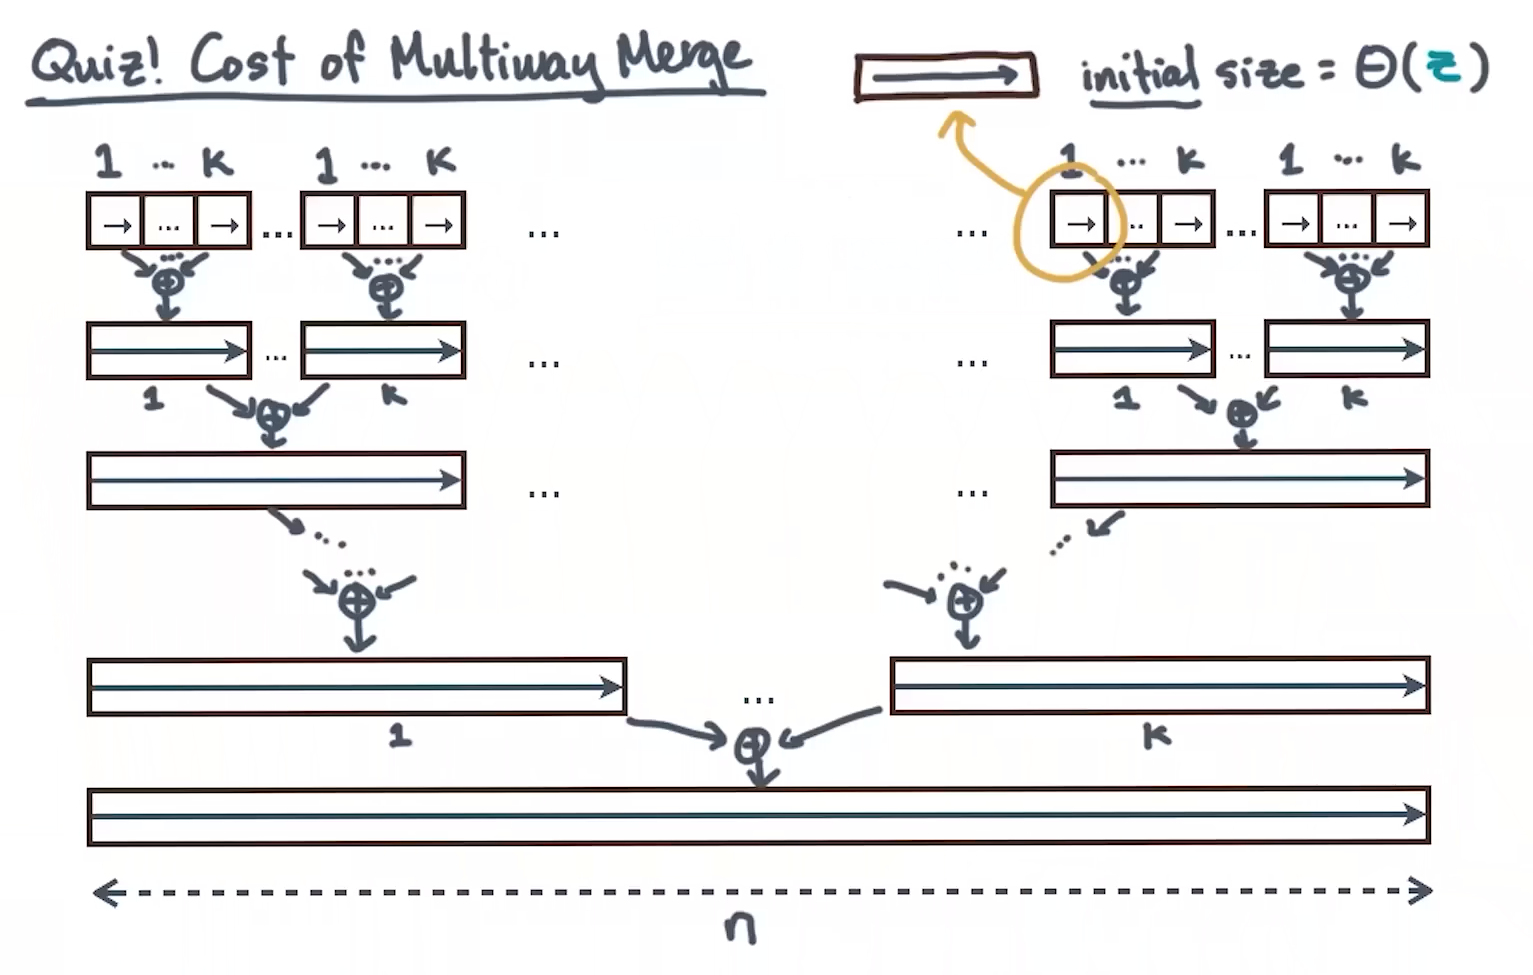 Quiz! Cost of Multiway Merge
initial size = Θ(Z)
1 ... k 1 ... k 1 ... k 1 ... k
→ ... → ... → ... → ... → ... → ... → ... → ... →
... ... ... ...
1 k 1 k
... ...
1 ... k
n